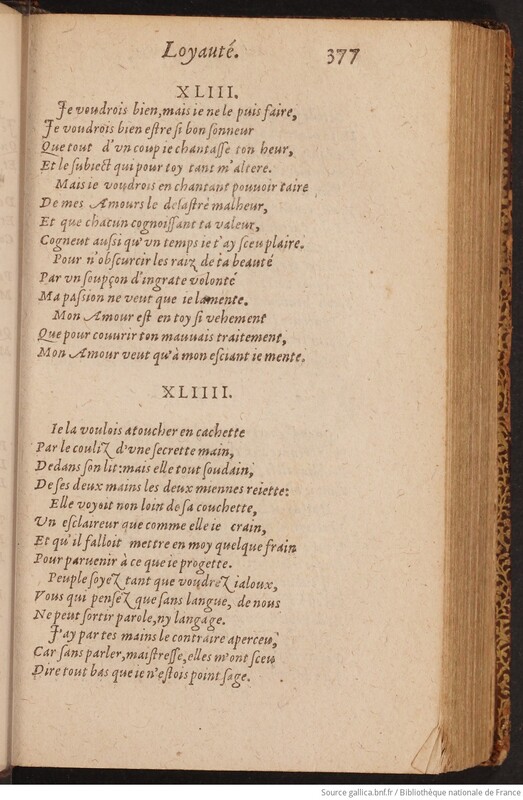 Loyauté. 377
XLIII.
Je voudrois bien, mais ie ne le puis faire,
Je voudrois bien estre si bon sonneur
Que tout d'vn coup ie chantasse ton heur,
Et le subiect qui pour toy tant m'altere.
Mais ie voudrois en chantant pouuoir taire
De mes Amours le desastré malheur,
Et que chacun cognoissant ta valeur,
Cogneut aussi qu'vn temps ie t'ay sceu plaire.
Pour n'obscurcir les raiz de ta beauté
Par vn soupçon d'ingrate volonté
Ma passion ne veut que ie lamente.
Mon Amour est en toy si vehement
Que pour couurir ton mauuais traitement,
Mon Amour veut qu'à mon esciant ie mente.
XLIIII.
Ie la voulois atoucher en cachette
Par le couliz d'vne secrette main,
Dedans son lit: mais elle tout soudain,
De ses deux mains les deux miennes reiette:
Elle voyoit non loin de sa couchette,
Vn esclaireur que comme elle ie crain,
Et qu'il falloit mettre en moy quelque frain
Pour paruenir à ce que ie progette.
Peuple soyez tant que voudrez ialoux,
Vous qui pensez que sans langue, de nous
Ne peut sortir parole, ny langage.
J'ay par tes mains le contraire aperceu,
Car sans parler, maistresse, elles m'ont sceu
Dire tout bas que ie n'estois point sage.
Source gallica.bnf.fr / Bibliothèque nationale de France